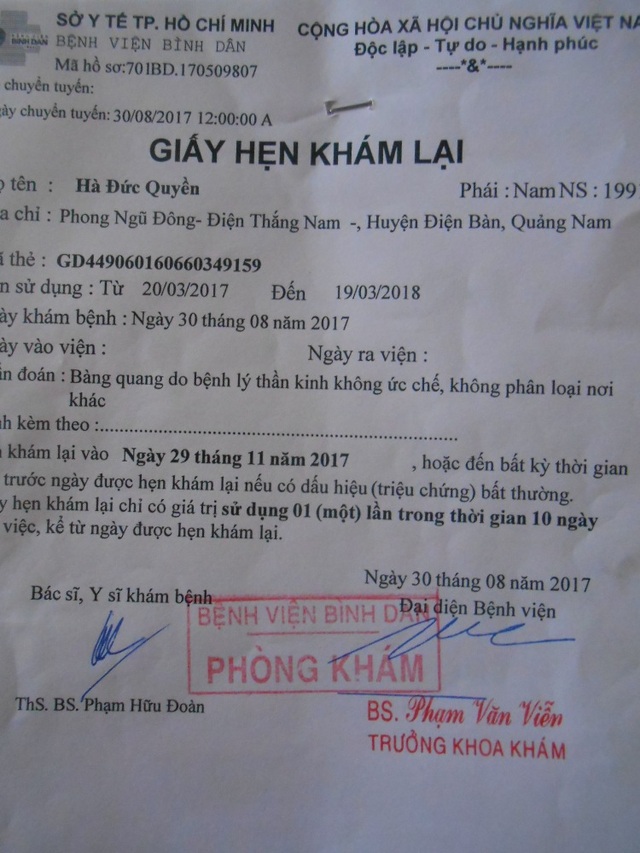 SỞ Y TẾ TP. HỒ CHÍ MINH
BỆNH VIỆN BÌNH DÂN
BÌNH DÂN
Mã hồ sơ:701BD.170509807
chuyển tuyến:
ày chuyển tuyến: 30/08/2017 12:00:00 A
CỘNG HÒA XÃ HỘI CHỦ NGHĨA VIỆT NA
Độc lập - Tự do - Hạnh phúc
----*&*----
GIẤY HẸN KHÁM LẠI
ọ tên : Hà Đức Quyền Phái : Nam NS : 199
a chỉ : Phong Ngũ Đông- Điện Thắng Nam -, Huyện Điện Bàn, Quảng Nam
ã thẻ : GD449060160660349159
n sử dụng : Từ 20/03/2017 Đến 19/03/2018
ày khám bệnh : Ngày 30 tháng 08 năm 2017
ày vào viện : Ngày ra viện :
ẩn đoán : Bàng quang do bệnh lý thần kinh không ức chế, không phân loại nơi
khác
nh kèm theo :..........................................................
n khám lại vào Ngày 29 tháng 11 năm 2017 , hoặc đến bất kỳ thời gian
trước ngày được hẹn khám lại nếu có dấu hiệu (triệu chứng) bất thường.
y hẹn khám lại chỉ có giá trị sử dụng 01 (một) lần trong thời gian 10 ngày
việc, kể từ ngày được hẹn khám lại.
Ngày 30 tháng 08 năm 2017
Bác sĩ, Y sĩ khám bệnh
Đại diện Bệnh viện
BỆNH VIỆN BÌNH DÂN
PHÒNG KHÁM
ThS. BS. Phạm Hữu Đoàn
BS. Phạm Văn Viễn
TRƯỞNG KHOA KHÁM